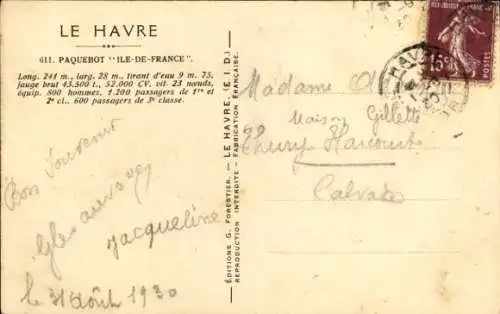 LE HAVRE
611. PAQUEBOT "ILE-DE-FRANCE".
Long. 241 m., larg. 28 m., tirant d'eau 9 m. 75,
jauge brut 43.500 t., 52.000 CV. vit. 23 nœuds,
équip. 800 hommes, 1.200 passagers de 1re et
2e cl., 600 passagers de 3e classe.
Bon Souvenir
Jacqueline
le 31 Août 1930
EDITIONS G. FORESTIER. — LE HAVRE. (E. I. D.)
REPRODUCTION INTERDITE - FABRICATION FRANÇAISE.
Madame
Maison Gillette
Thury Harcourt
Calvados
HAV
POSTES